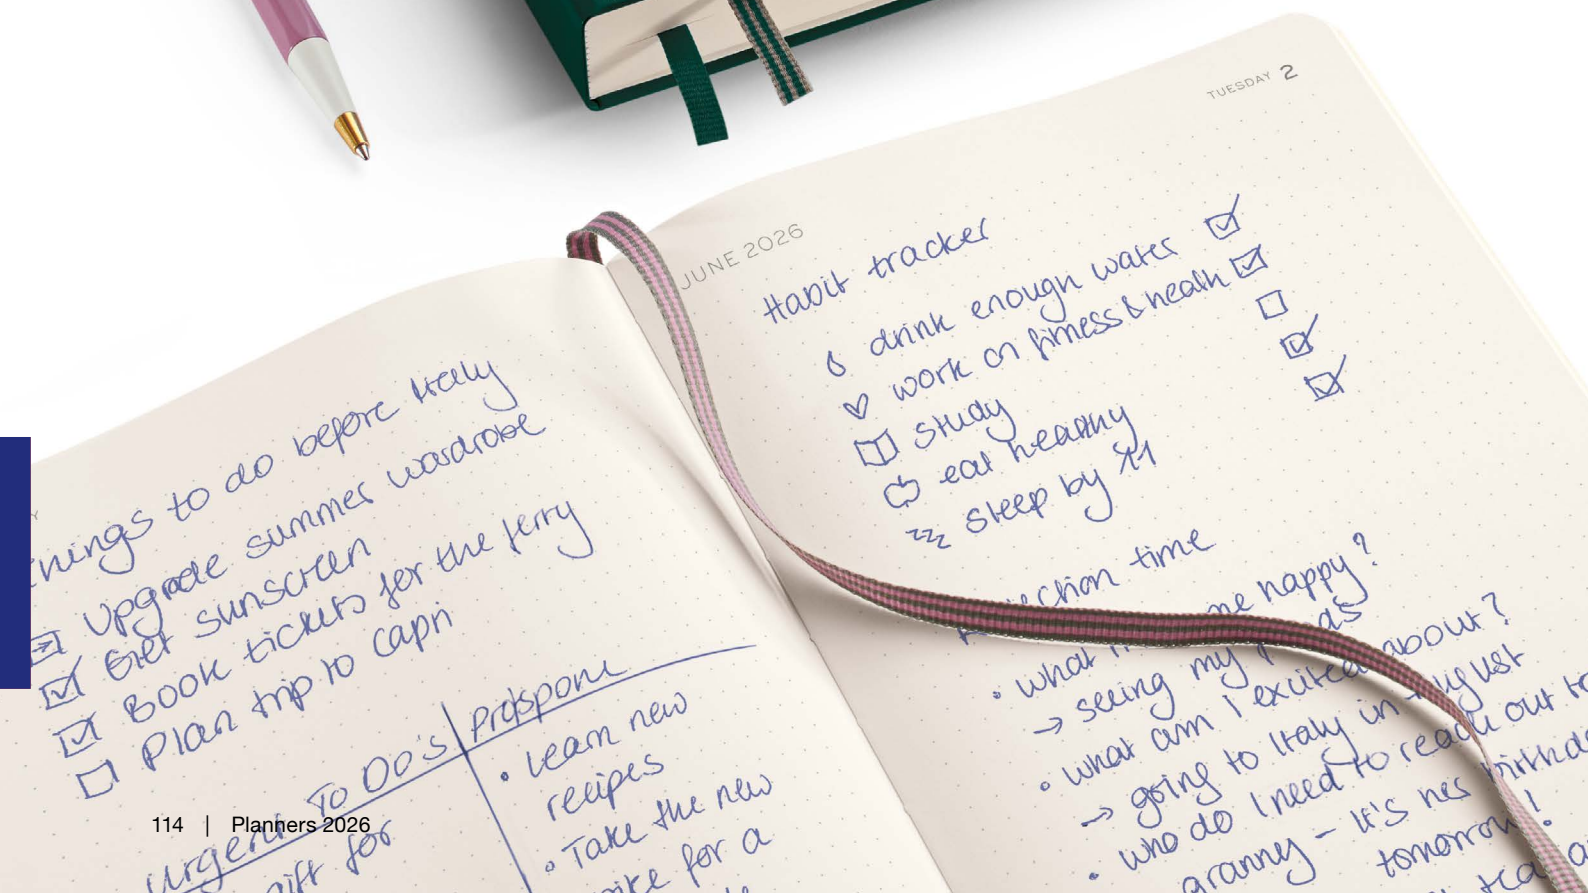 TUESDAY 2
JUNE 2026
Habit tracker
drink enough water
work on fitness & health
study
eat healthy
zzz sleep by 11
time
• what me happy?
→ seeing my
• what am I excited about?
→ going to Italy in August
• who do I need to reach out to
granny - it's her birthda
tomorrow!
things to do before Italy
Upgrade summer wardrobe
Get sunscreen
Book tickets for the ferry
Plan trip to Capri
Urgent To Do's
gift for
Postpone
• Learn new
recipes
• Take the new
bike for a
114 | Planners 2026